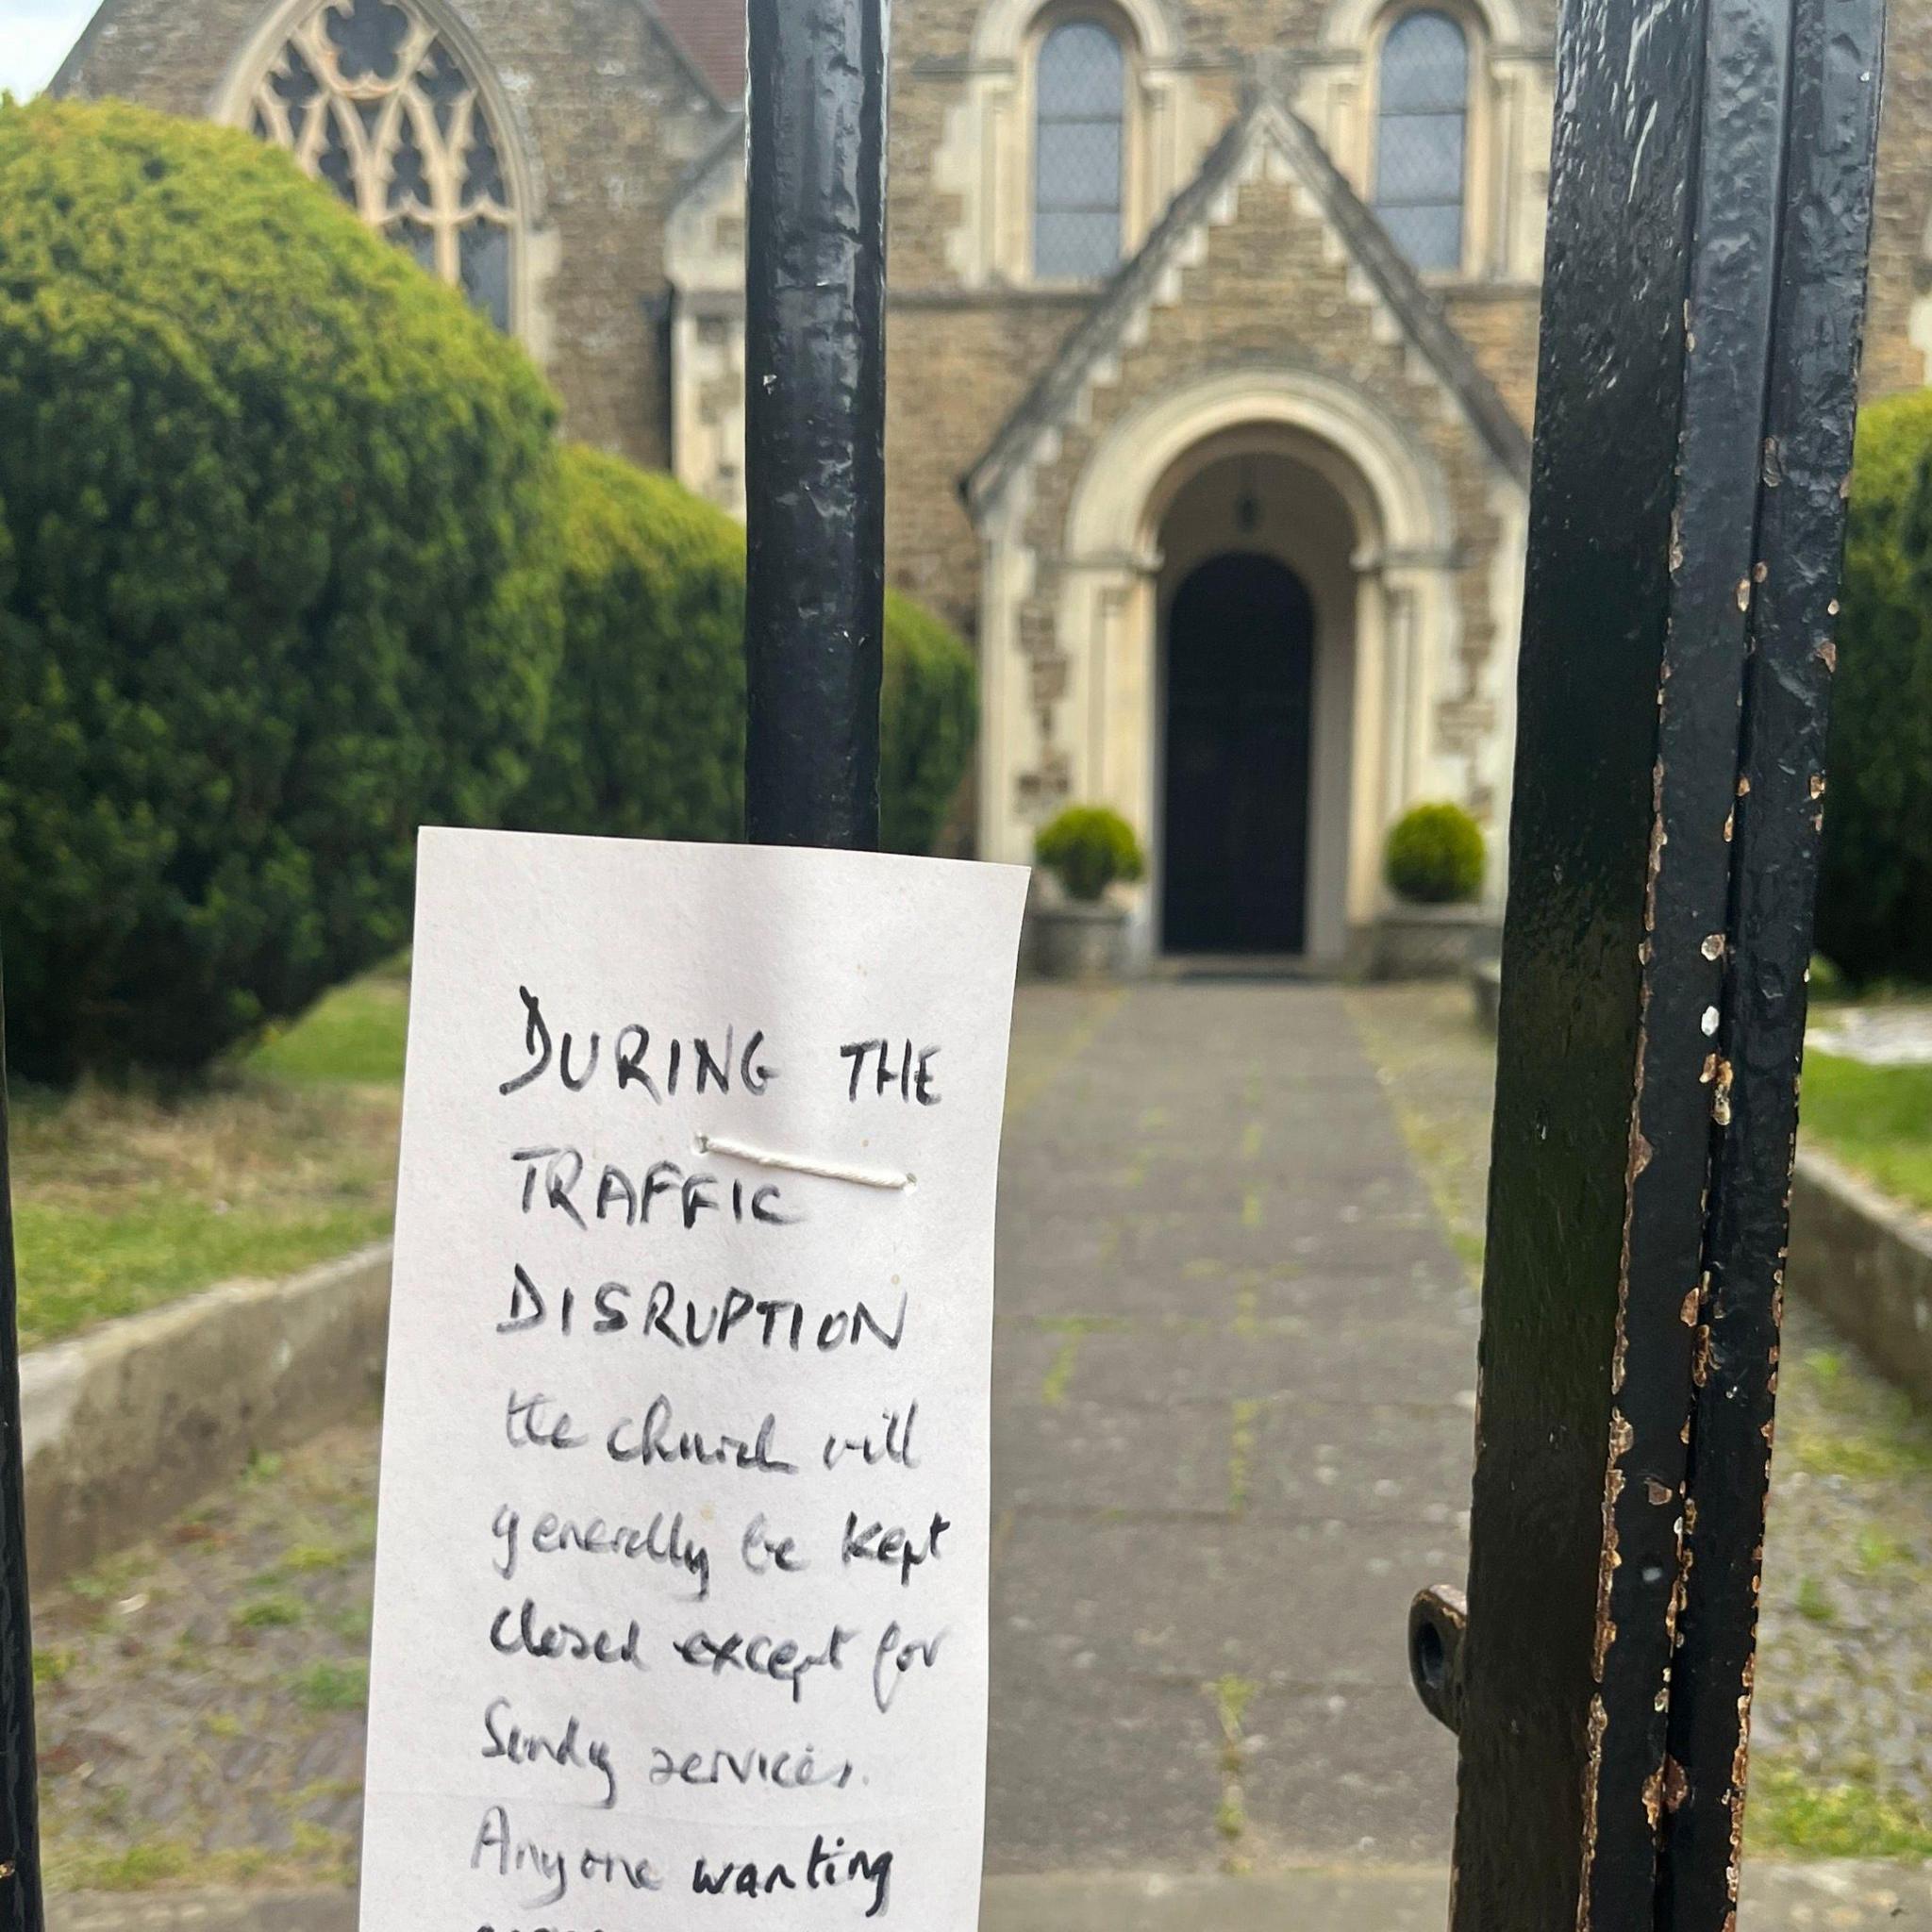 DURING THE
TRAFFIC
DISRUPTION
the church will
generally be kept
closed except for
Sundy services.
Anyone wanting